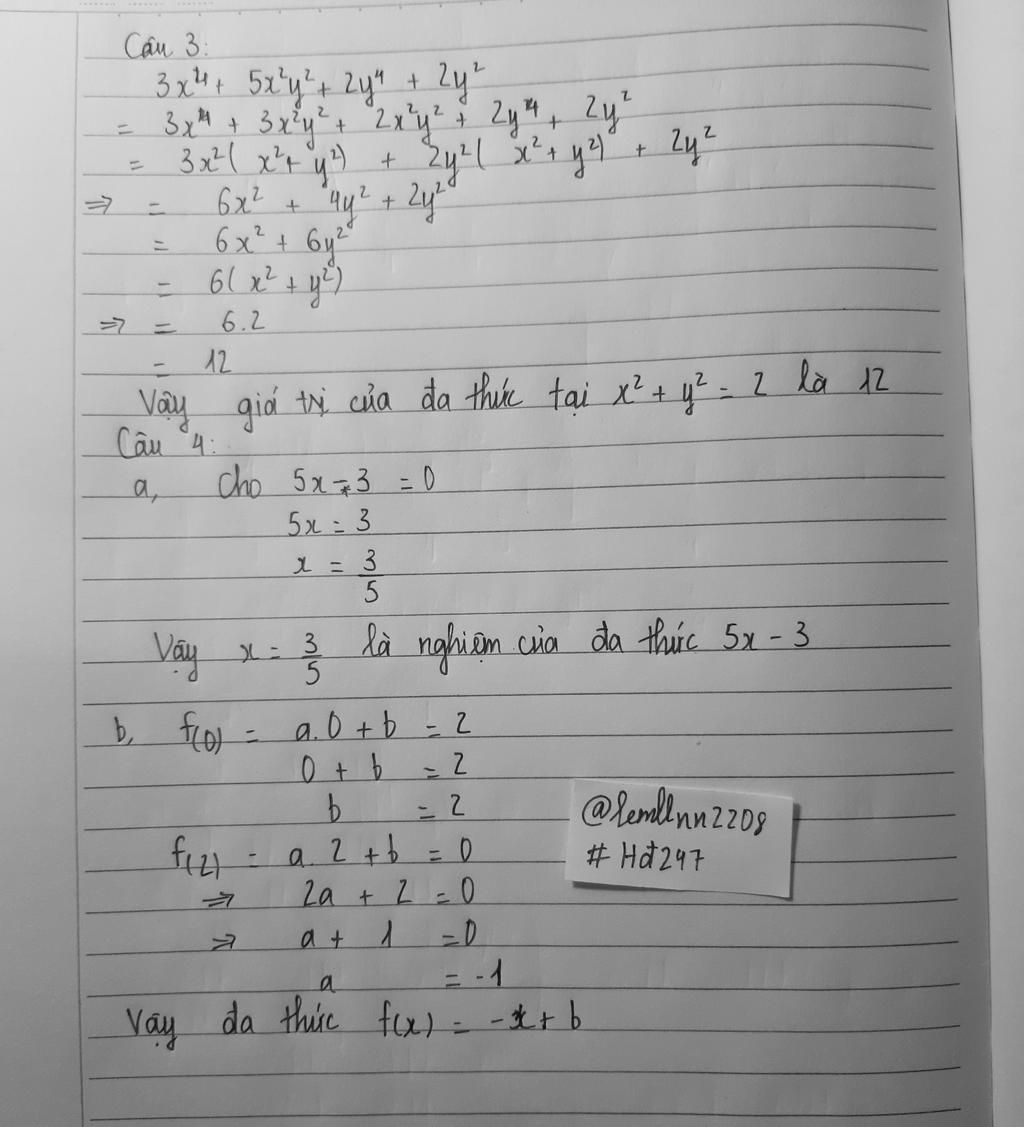 Câu 3:
3x⁴ + 5x²y² + 2y⁴ + 2y²
= 3x⁴ + 3x²y² + 2x²y² + 2y⁴ + 2y²
= 3x²( x² + y²) + 2y²( x² + y²) + 2y²
=> = 6x² + 4y² + 2y²
= 6x² + 6y²
= 6( x² + y²)
=> = 6.2
= 12
Vậy giá trị của đa thức tại x² + y² = 2 là 12
Câu 4:
a, Cho 5x - 3 = 0
5x = 3
x = 3/5
Vậy x = 3/5 là nghiệm của đa thức 5x - 3
b, f(0) = a.0 + b = 2
0 + b = 2
b = 2
f(2) = a.2 + b = 0
=> 2a + 2 = 0
=> a + 1 = 0
a = -1
Vậy đa thức f(x) = -x + b
@lemllnn2208
# Hđ247